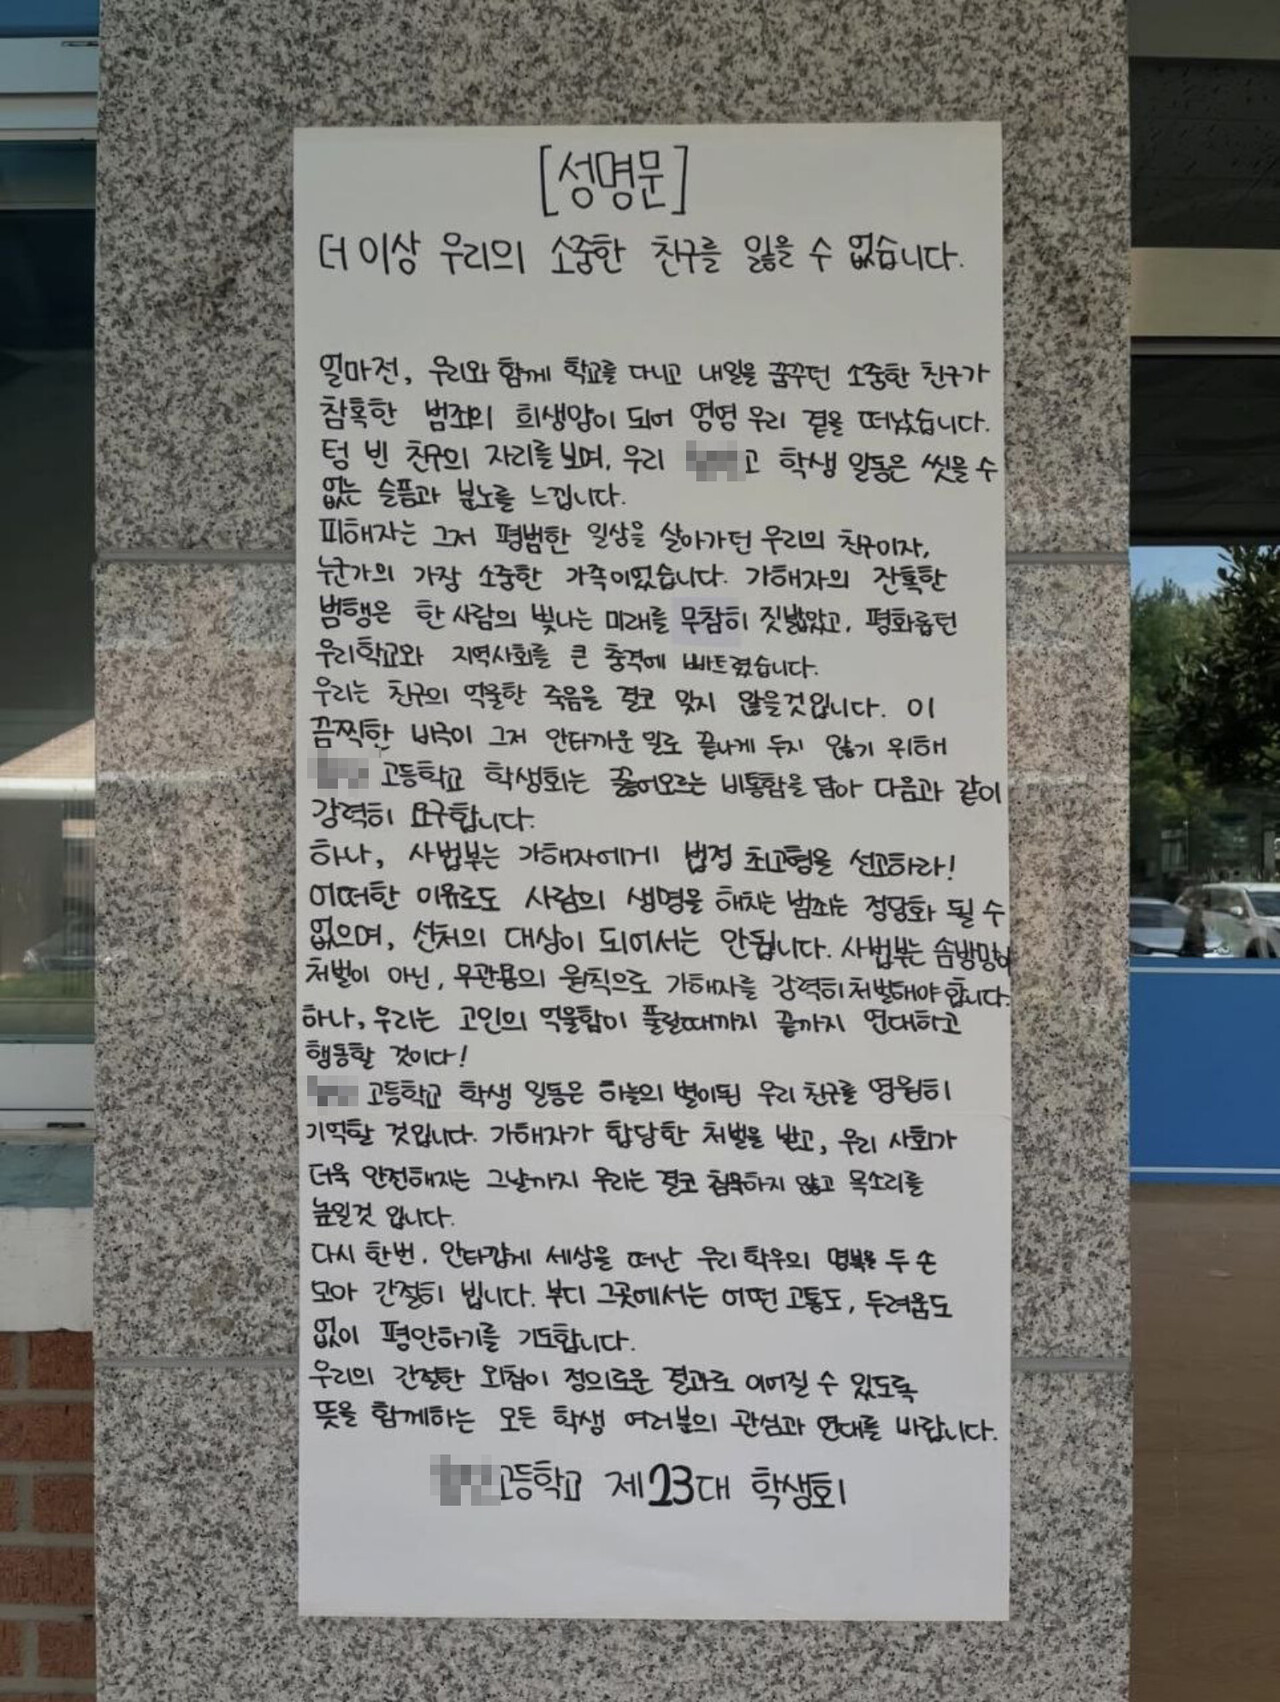 [성명문]
더 이상 우리의 소중한 친구를 잃을 수 없습니다.
얼마전, 우리와 함께 학교를 다니고 내일을 꿈꾸던 소중한 친구가
참혹한 범죄의 희생양이 되어 영영 우리 곁을 떠났습니다.
텅 빈 친구의 자리를 보며, 우리 고 학생 일동은 씻을 수
없는 슬픔과 분노를 느낍니다.
피해자는 그저 평범한 일상을 살아가던 우리의 친구이자,
누군가의 가장 소중한 가족이었습니다. 가해자의 잔혹한
범행은 한 사람의 빛나는 미래를 무참히 짓밟았고, 평화롭던
우리학교와 지역사회를 큰 충격에 빠트렸습니다.
우리는 친구의 억울한 죽음을 결코 잊지 않을것입니다. 이
끔찍한 비극이 그저 안타까운 일로 끝나게 두지 않기 위해
고등학교 학생회는 끓어오르는 비통함을 담아 다음과 같이
강력히 요구합니다.
하나, 사법부는 가해자에게 법정 최고형을 선고하라!
어떠한 이유로도 사람의 생명을 해치는 범죄는 정당화 될 수
없으며, 선처의 대상이 되어서는 안됩니다. 사법부는 솜방망이
처벌이 아닌, 무관용의 원칙으로 가해자를 강력히 처벌해야 합니다.
하나, 우리는 고인의 억울함이 풀릴때까지 끝까지 연대하고
행동할 것이다!
고등학교 학생 일동은 하늘의 별이된 우리 친구를 영원히
기억할 것입니다. 가해자가 합당한 처벌을 받고, 우리 사회가
더욱 안전해지는 그날까지 우리는 결코 침묵하지 않고 목소리를
높일것 입니다.
다시 한번, 안타깝게 세상을 떠난 우리 학우의 명복을 두 손
모아 간절히 빕니다. 부디 그곳에서는 어떤 고통도, 두려움도
없이 평안하기를 기도합니다.
우리의 간절한 외침이 정의로운 결과로 이어질 수 있도록
뜻을 함께하는 모든 학생 여러분의 관심과 연대를 바랍니다.
고등학교 제23대 학생회